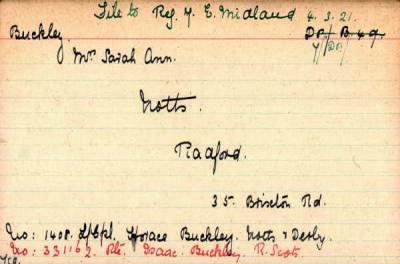 File to Reg. Y. E. Midland 4.3.21.
Buckley. DP/ B.49.
Y/DP/
Mrs Sarah Ann.
Notts.
Radford.
35 Brixton Rd.
No: 1408. L/Cpl. Horace Buckley. Notts & Derby.
No: 331162. Pte. Isaac Buckley. R. Scots.